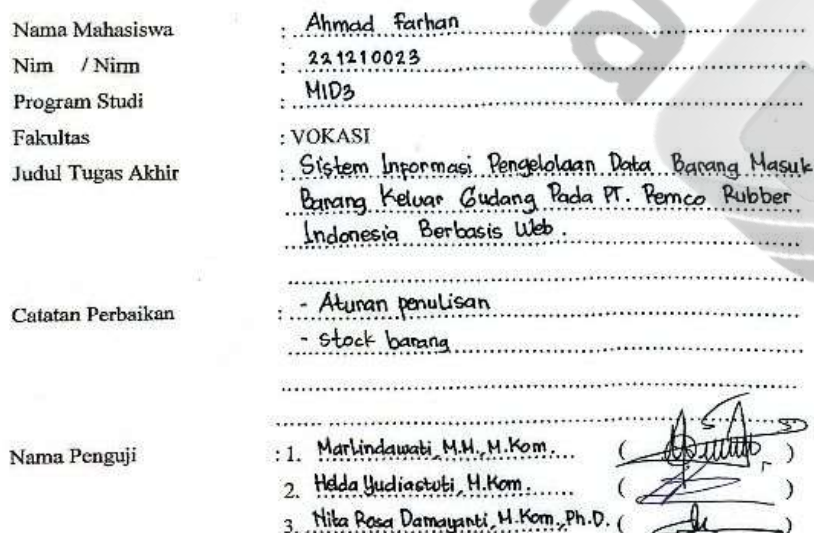 Nama Mahasiswa : Ahmad Farhan
Nim / Nirm : 221210023
Program Studi : MID3
Fakultas : VOKASI
Judul Tugas Akhir : Sistem Informasi Pengelolaan Data Barang Masuk
Barang Keluar Gudang Pada PT. Pemco Rubber
Indonesia Berbasis Web.
Catatan Perbaikan : - Aturan penulisan
- stock barang
Nama Penguji : 1. Marlindawati, M.M., M.Kom. ( )
2. Helda Yudiastuti, M.Kom. ( )
3. Nita Rosa Damayanti, M.Kom., Ph.D. ( )